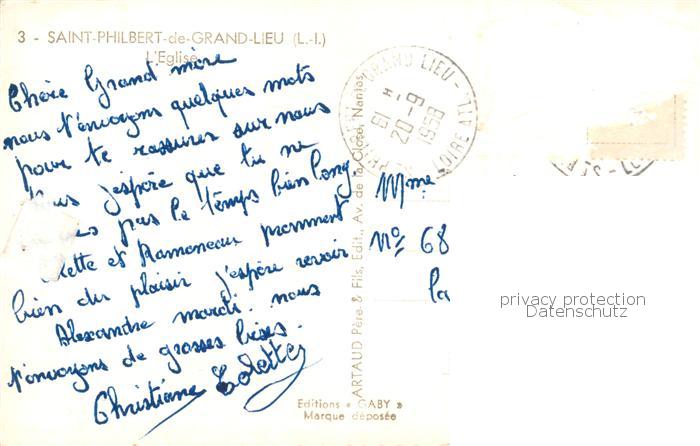 3 - SAINT-PHILBERT-de-GRAND-LIEU (L.-I.)
L'Eglise
Chère Grand mère
nous t'envoyons quelques mots
pour te rassurer sur nous
j'espère que tu ne
pas le temps bien long.
et Ramoneaux prennent
bien du plaisir j'espère revoir
Alexandre mardi. nous
t'envoyons de grosses bises.
Christiane Colette
ARTAUD Père & Fils, Edit., Av. de la Close, Nantes
GRAND LIEU - LOIRE ATL
19 H
20-9
1958
Mme
No 68
la
privacy protection
Datenschutz
Editions « GABY »
Marque déposée